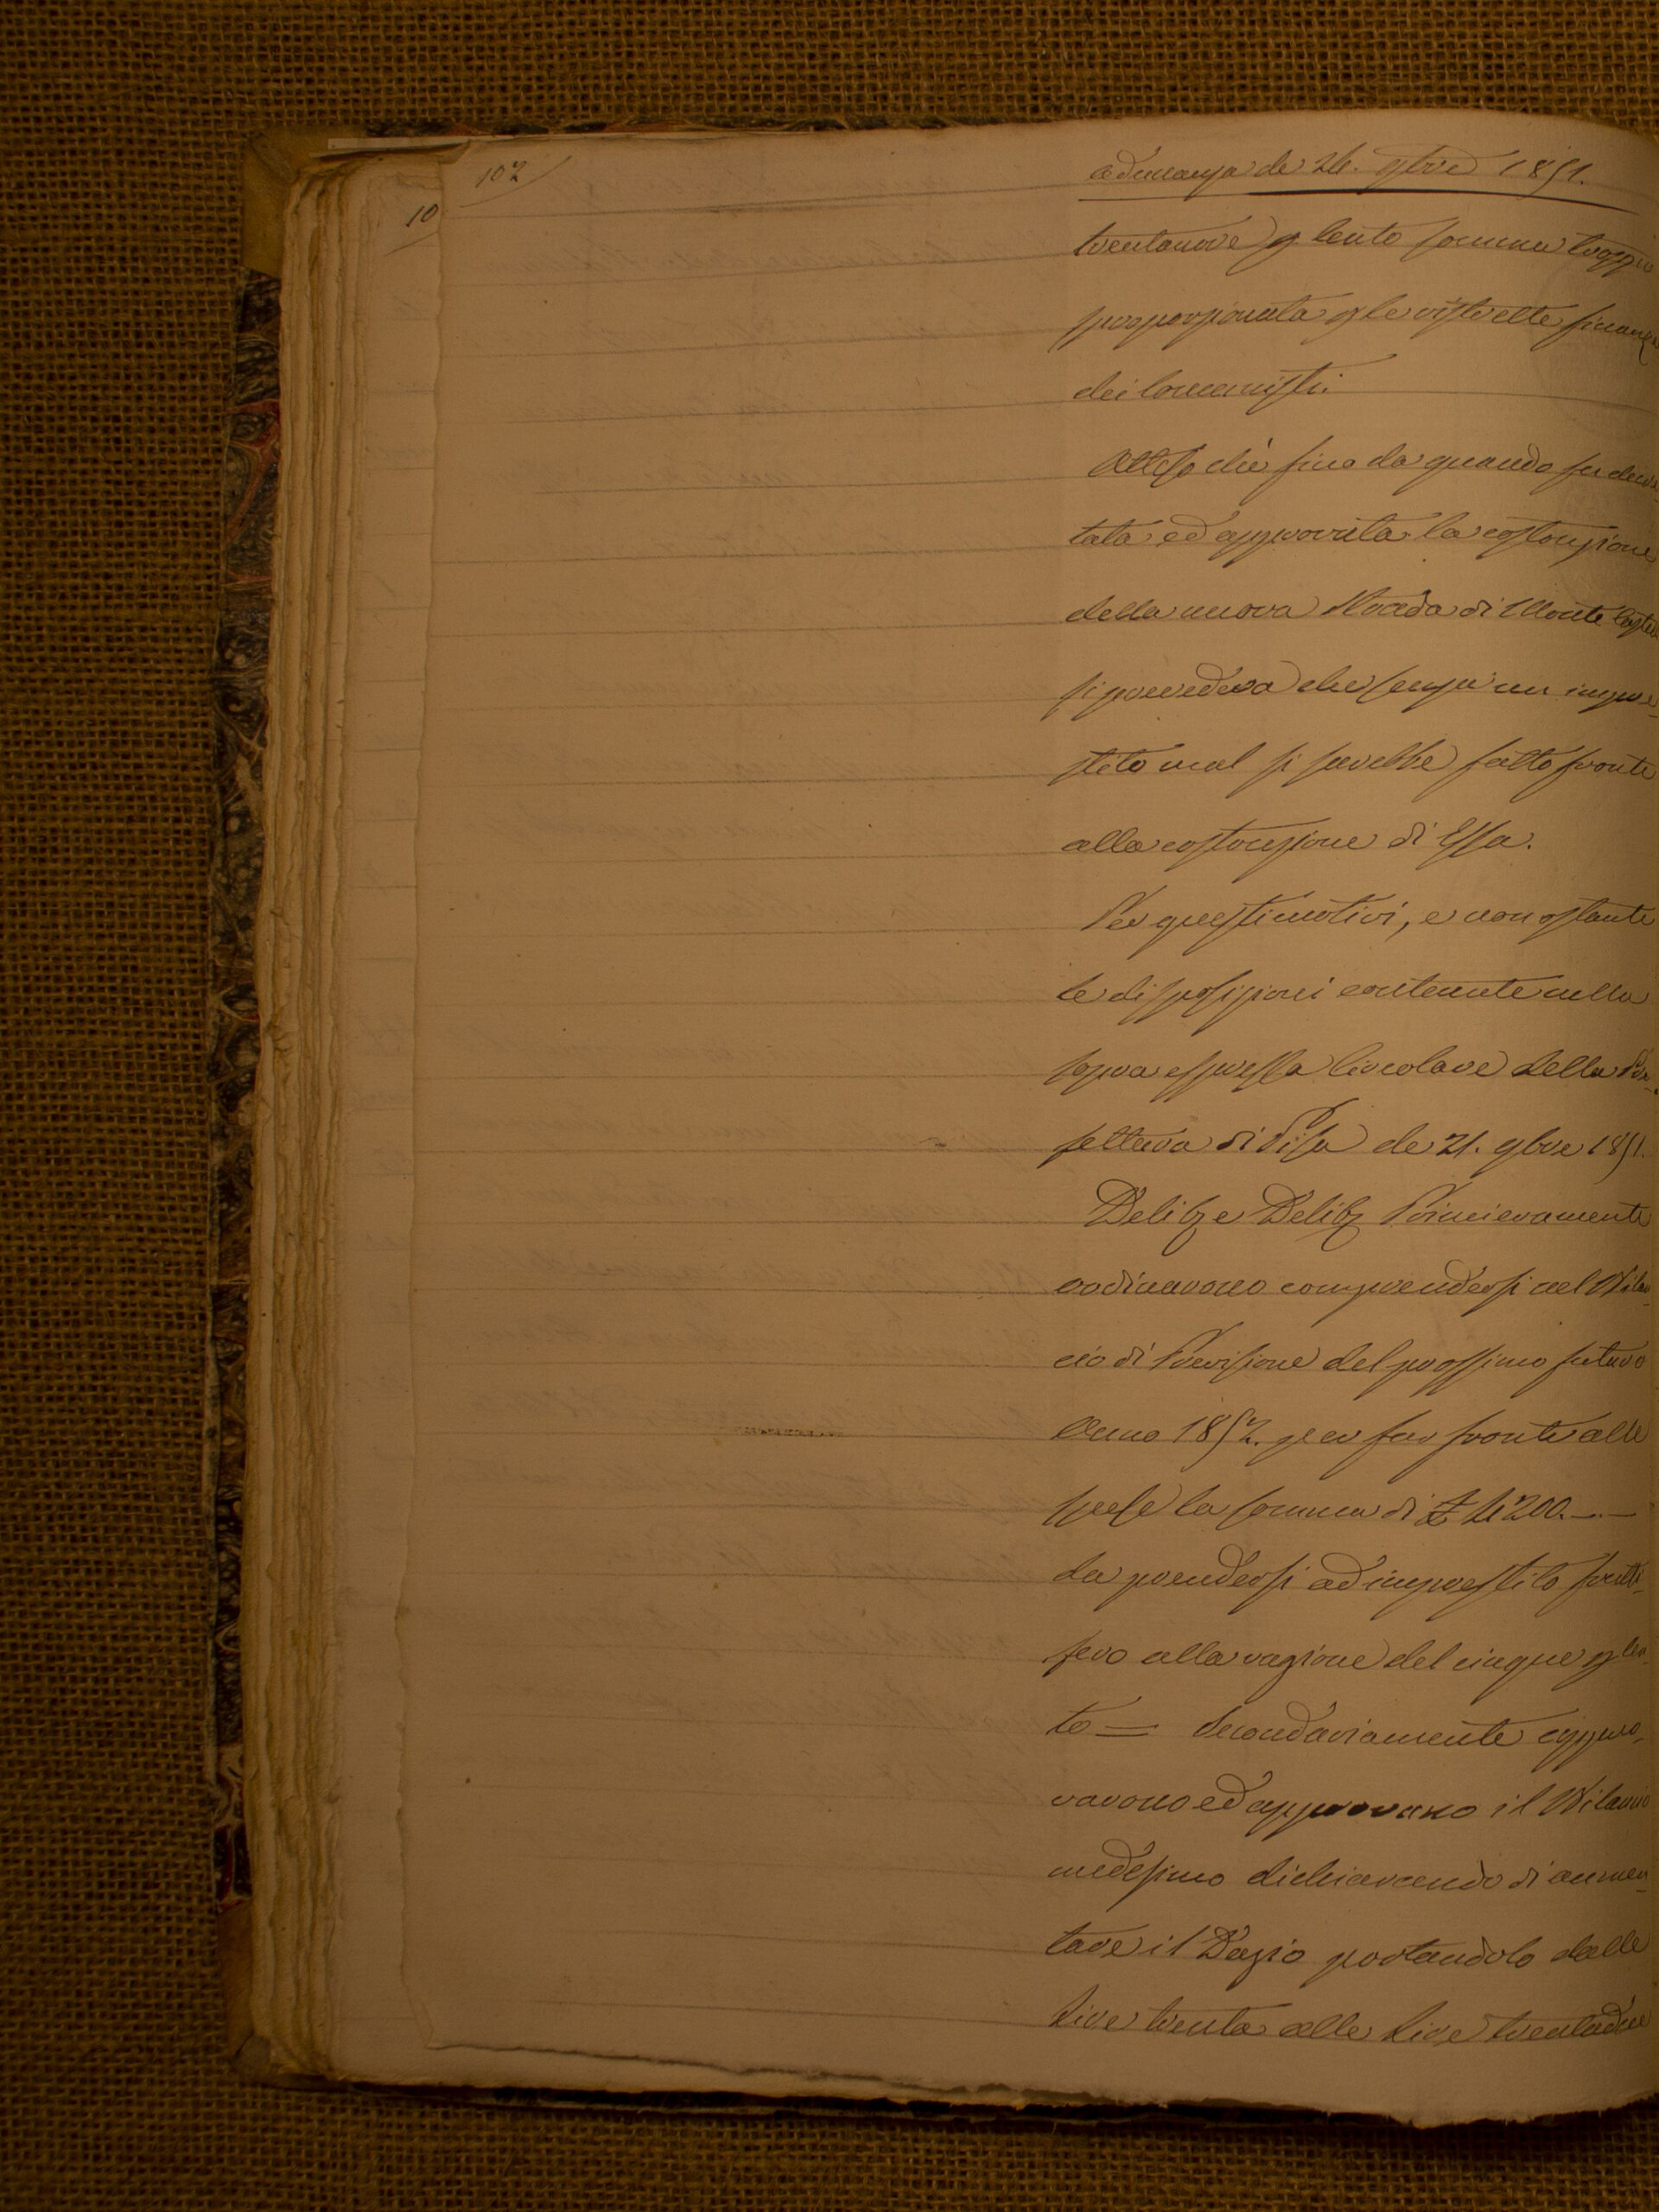 102
10
adunanza de 26. 9bre 1851.
trentanove p Cento somma troppo
sproporzionata p le ristrette finanze
dei Comunisti.
Attesoché fino da quando fu decre
tata ed approvata la costruzione
della nuova Strada di Monte
si prevedeva che senza un impre-
stito mal si sarebbe fatto fronte
alla costruzione di Essa.
Per questi motivi, e non ostante
le disposizioni contenute nella
sopra espressa Circolare della Pre-
fettura di Pisa de 21. 9bre 1851.
Delib e Delib Primieramente
ordinarono comprendersi nel Bilan-
cio di Previsione del prossimo futuro
Anno 1852. per far fronte alle
spese la somma di £ 4200.—
da prendersi ad imprestito frutti-
fero alla ragione del cinque p Cen-
to = Secondariamente appro-
varono ed approvano il Bilancio
medesimo dichiarando di aumen-
tare il Dazio portandolo dalle
Lire trenta alle Lire trentadue